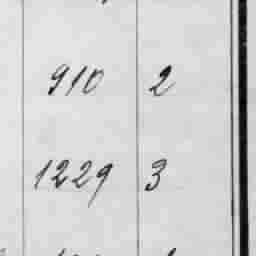 910 2
1229 3